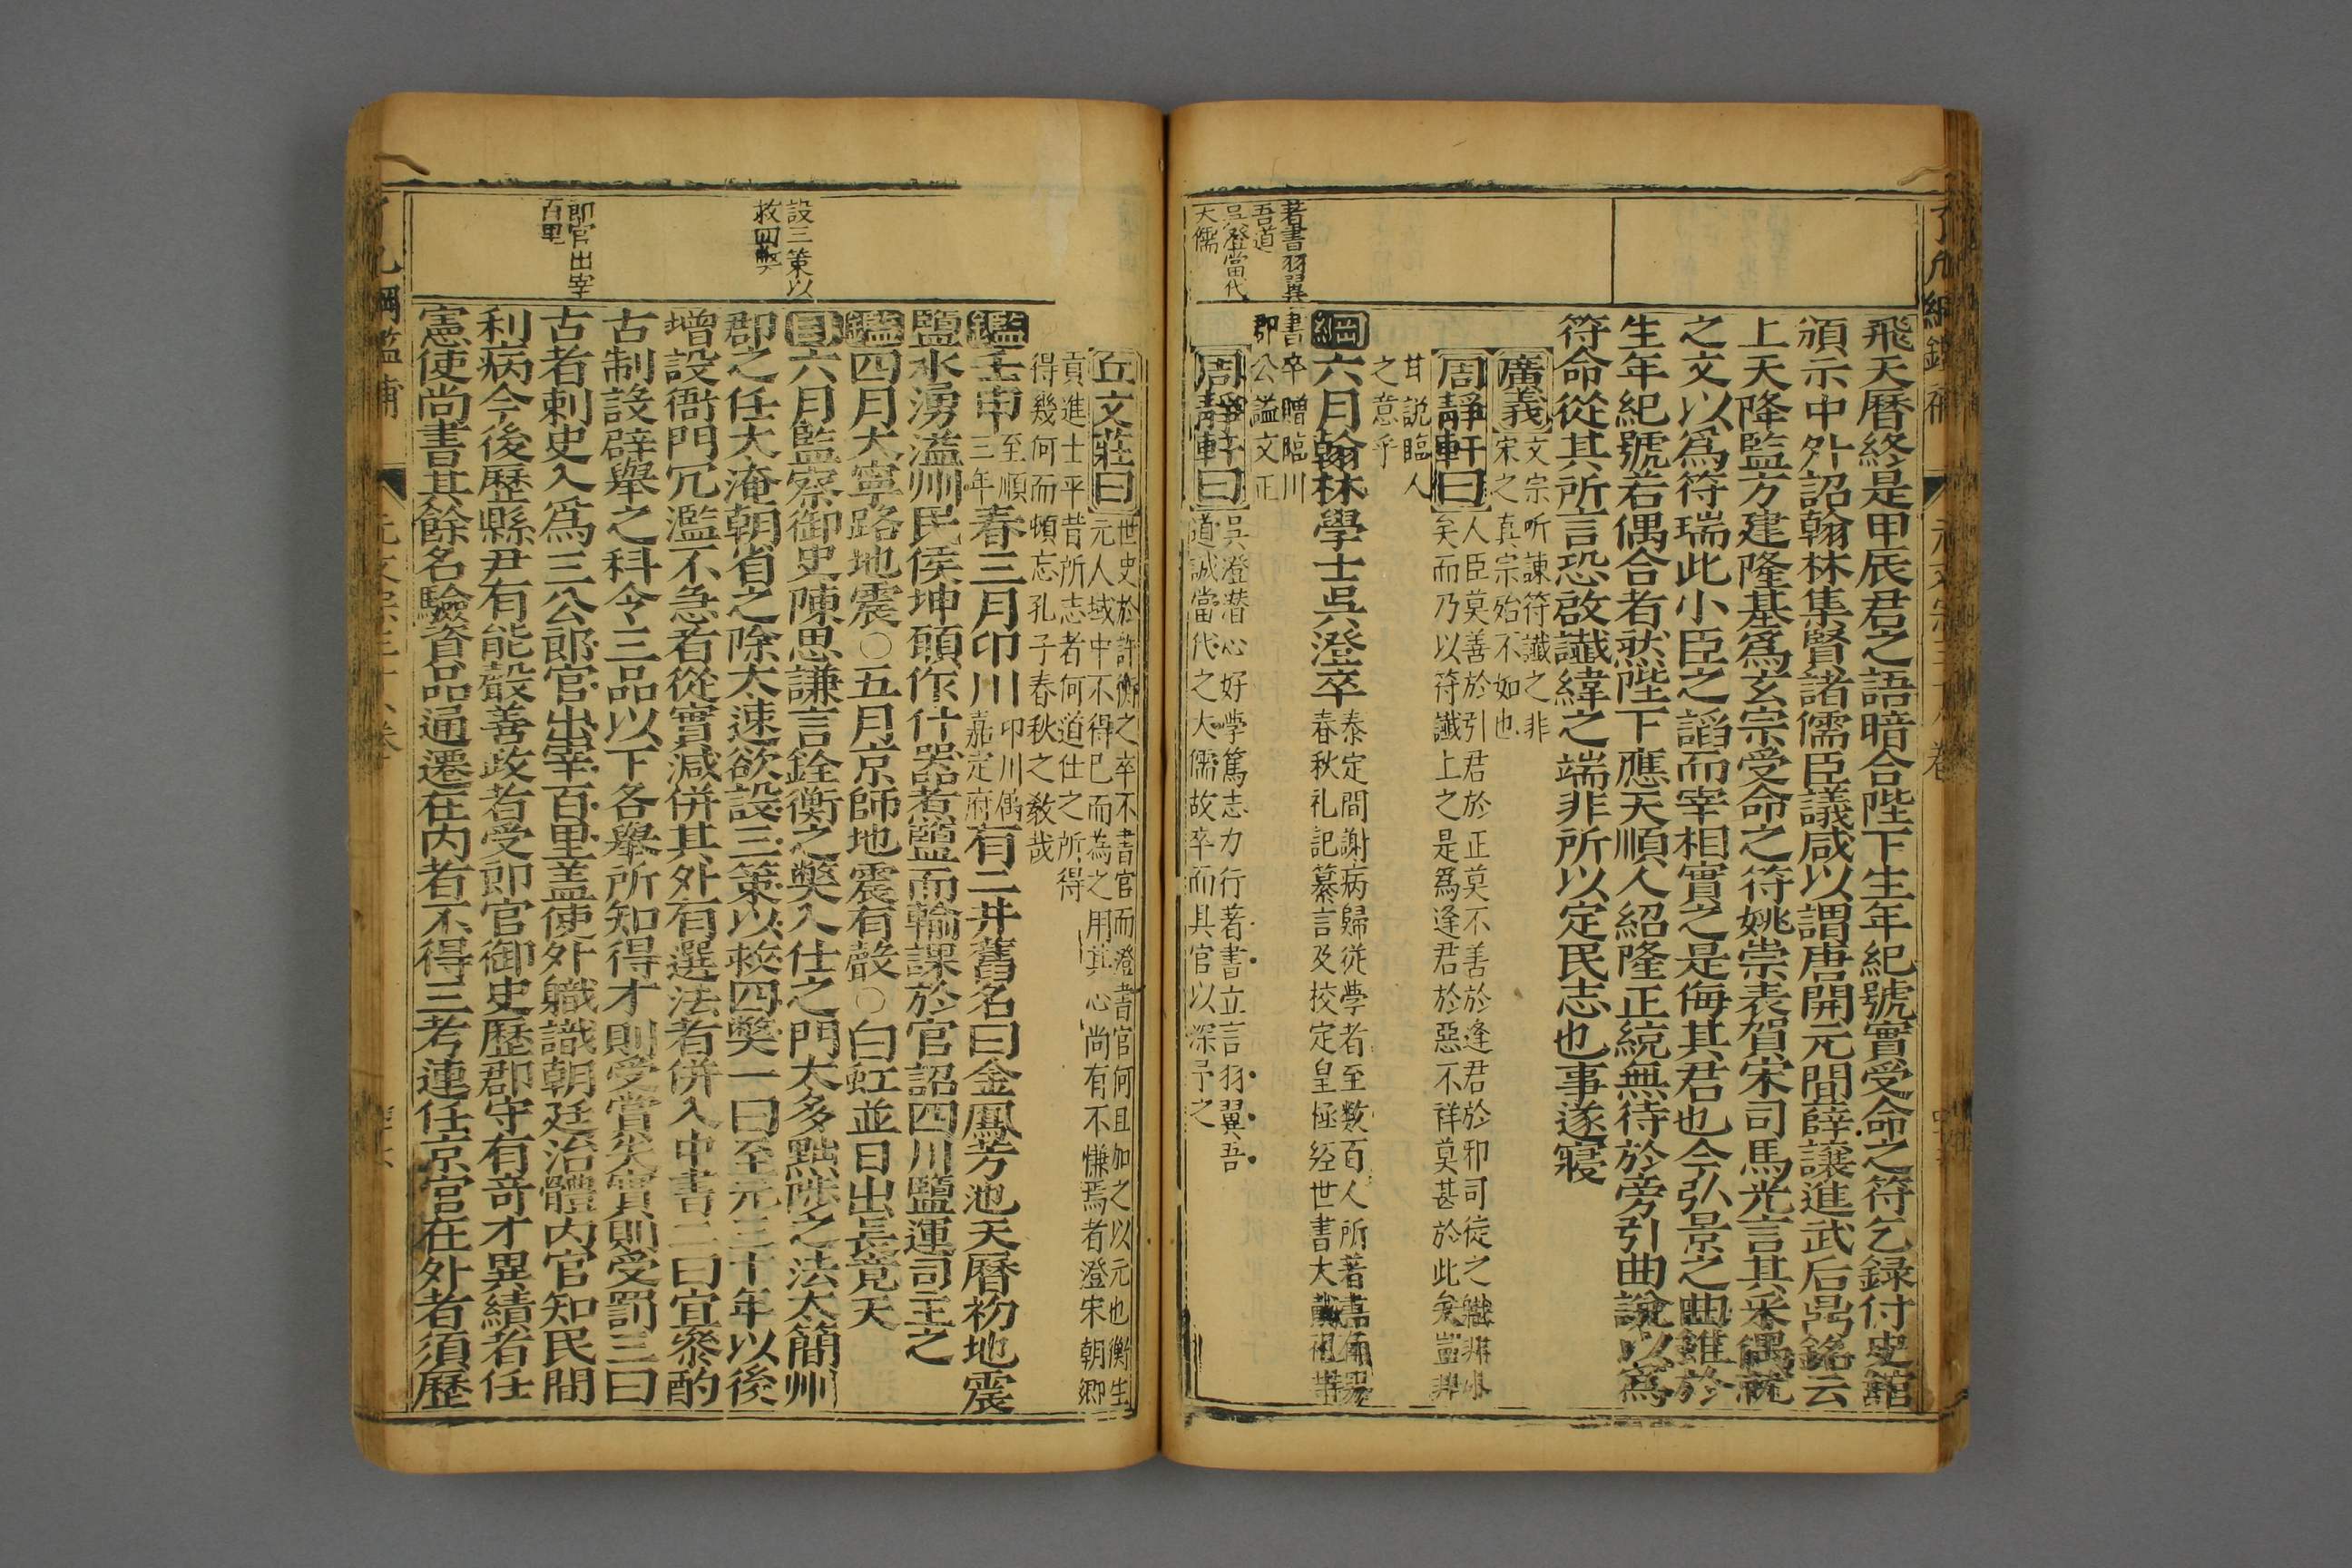 飛天曆終是甲辰君之語暗合陛下生年紀號實受命之符乞録付史舘
頒示中外詔翰林集賢諸儒臣議咸以謂唐開元間薛讓進武后鼎銘云
上天降監方建隆基爲玄宗受命之符姚崇表賀宋司馬光言其采偶就
之文以爲符瑞此小臣之謟而宰相實之是侮其君也今弘景之曲雖於
生年紀號若偶合者然陛下應天順人紹隆正統無待於旁引曲說以爲
符命從其所言恐啟讖緯之端非所以定民志也事遂寢
廣義
文宗听諫符讖之非
宋之真宗殆不如也
周靜軒曰
人臣莫善於引君於正莫不善於逢君於邪司徒之職非小
矣而乃以符讖上之是爲逢君於惡不祥莫甚於此矣豈非
甘說臨人
之意乎
綱六月翰林學士吳澄卒
泰定間謝病歸從學者至数百人所著
春秋礼記纂言及挍定皇極经世書大
書卒贈臨川
郡公謚文正
周靜軒曰
吳澄潛心好學篤志力行著書立言羽翼吾
道誠當代之大儒故卒而具官以深予之
著書羽翼
吾道
吳澄當代
大儒
丘文莊曰
世史於許衡之卒不書官而澄書官何且加之以元也衡生
元人域中不得已而為之用其心尚有不慊焉者澄宋朝鄉
貢進士平昔所志者何道仕之所得
得幾何而頓忘孔子春秋之教哉
鑑壬申
至順
三年
春三月卬川
卬川僞
嘉定府
有二井舊名曰金鳳芳池天曆初地震
鹽水湧溢州民侯坤願作什器煮鹽而輸課於官詔四川鹽運司主之
鑑四月大寧路地震○五月京師地震有聲○白虹並日出長竟天
目六月監察御史陳思謙言銓衡之獘入仕之門太多黜陟之法太簡州
郡之任太淹朝省之除太速欲設三策以救四獘一曰至元三十年以後
增設衙門冗濫不急者從實減併其外有選法者併入中書二曰宜參酌
古制設辟舉之科令三品以下各舉所知得才則受賞失實則受罰三曰
古者刺史入爲三公郎官出宰百里盖使外職識朝廷治體内官知民間
利病今後歷縣尹有能聲善政者受郎官御史歷郡守有竒才異績者任
憲使尚書其餘名驗資品通遷在内者不得三考連任京官在外者須歷
設三策以
救四獘
郎官出宰
百里